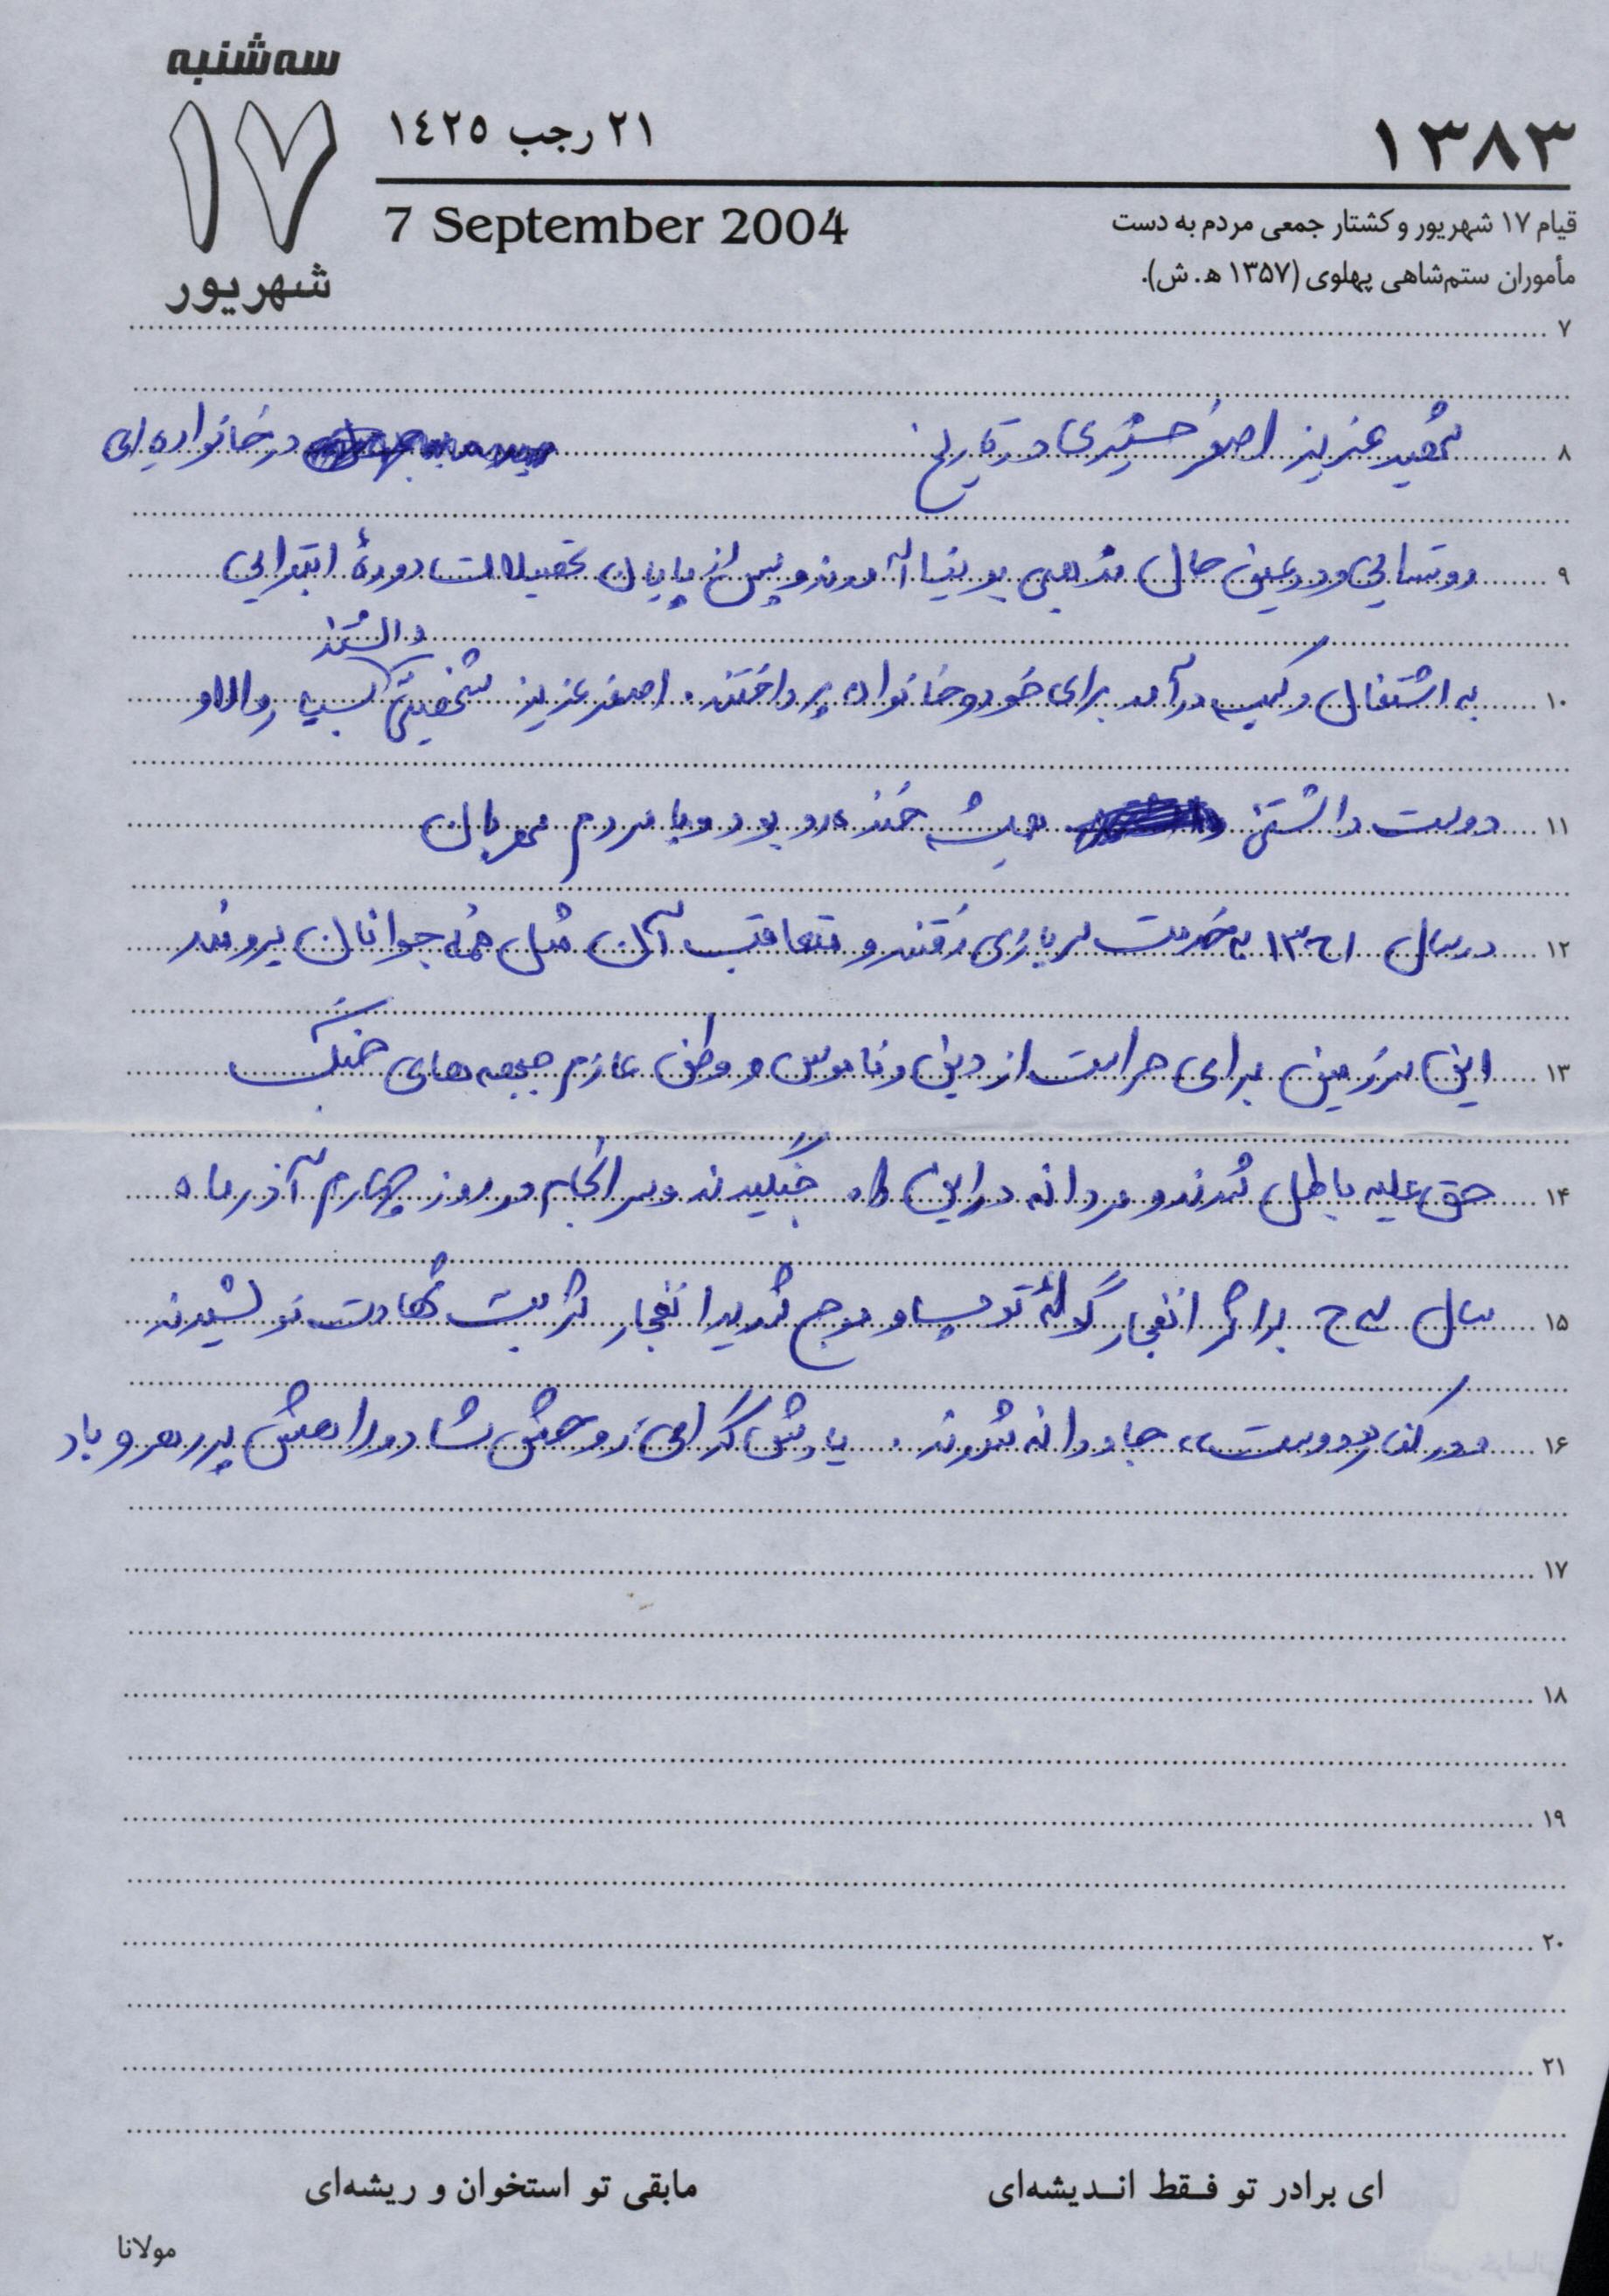 سه‌شنبه
۱۷
شهریور
۲۱ رجب ۱٤۲۵
۱۳۸۳
7 September 2004
قیام ۱۷ شهریور و کشتار جمعی مردم به دست
مأموران ستم‌شاهی پهلوی (۱۳۵۷ ه‍. ش).
۷
۸ شهید عزیز اصغر حشتیری در تاریخ در خانواده‌ای
۹ روستایی و در عین حال مذهبی بدنیا آمدند و پس از پایان تحصیلات دورهٔ ابتدایی
داشتند
۱۰ به اشتغال و کسب درآمد برای خود و خانواده پرداختند. اصغر عزیز شخصیتی بسیار والا و
۱۱ دوست داشتنی همیشه خنده‌رو بود و با مردم مهربان
۱۲ در سال به خدمت سربازی رفتند و متعاقب آن مثل همه جوانان برومند
۱۳ این سرزمین برای حراست از دین و ناموس و وطن عازم جبهه‌های جنگ
۱۴ حق علیه باطل شدند و مردانه در این راه جنگیدند و سرانجام در روز چهارم آذر ماه
۱۵ سال بر اثر انفجار گلولهٔ توپ و موج شدید انفجار شربت شهادت نوشیدند
۱۶ و در کنار دوست، جاودانه شدند. یادش گرامی، روحش شاد و راهش پر رهرو باد
۱۷
۱۸
۱۹
۲۰
۲۱
ای برادر تو فـقط انـدیشه‌ای مابقی تو استخوان و ریشه‌ای
مولانا